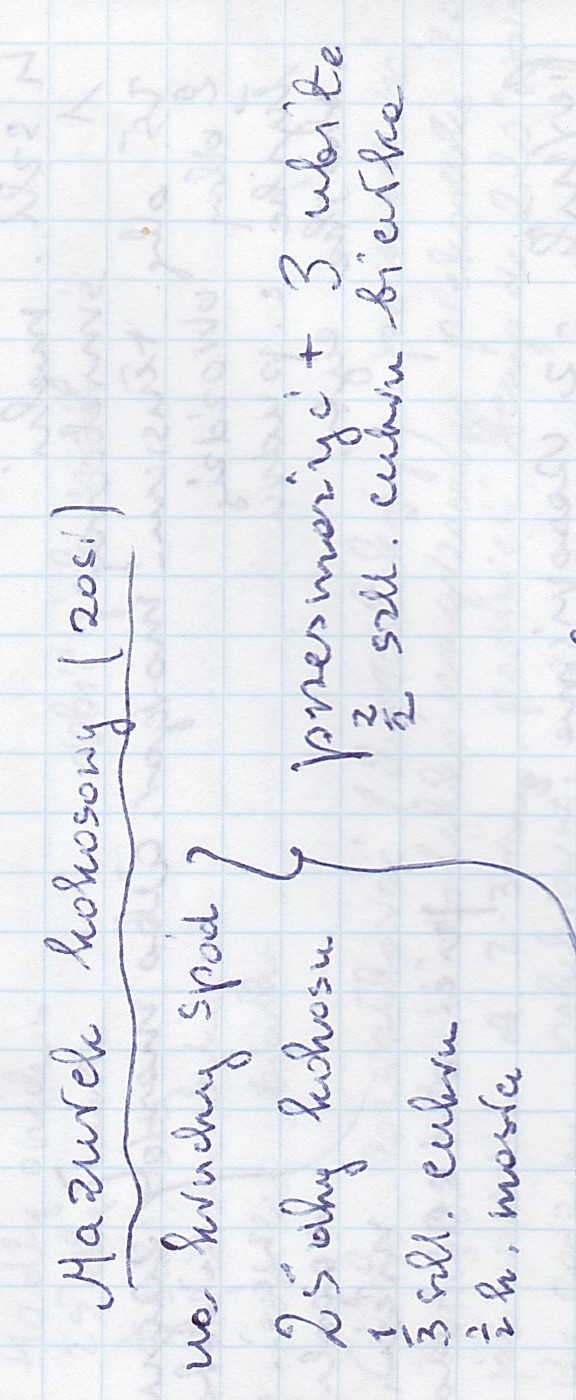 Mazurek kokosowy (Zosi)
na kruchy spód
25 dkg kokosu
1/3 szkl. cukru
1/2 k. masła
przesmażyć + 3 ubite
2/2 szkl. cukru białka